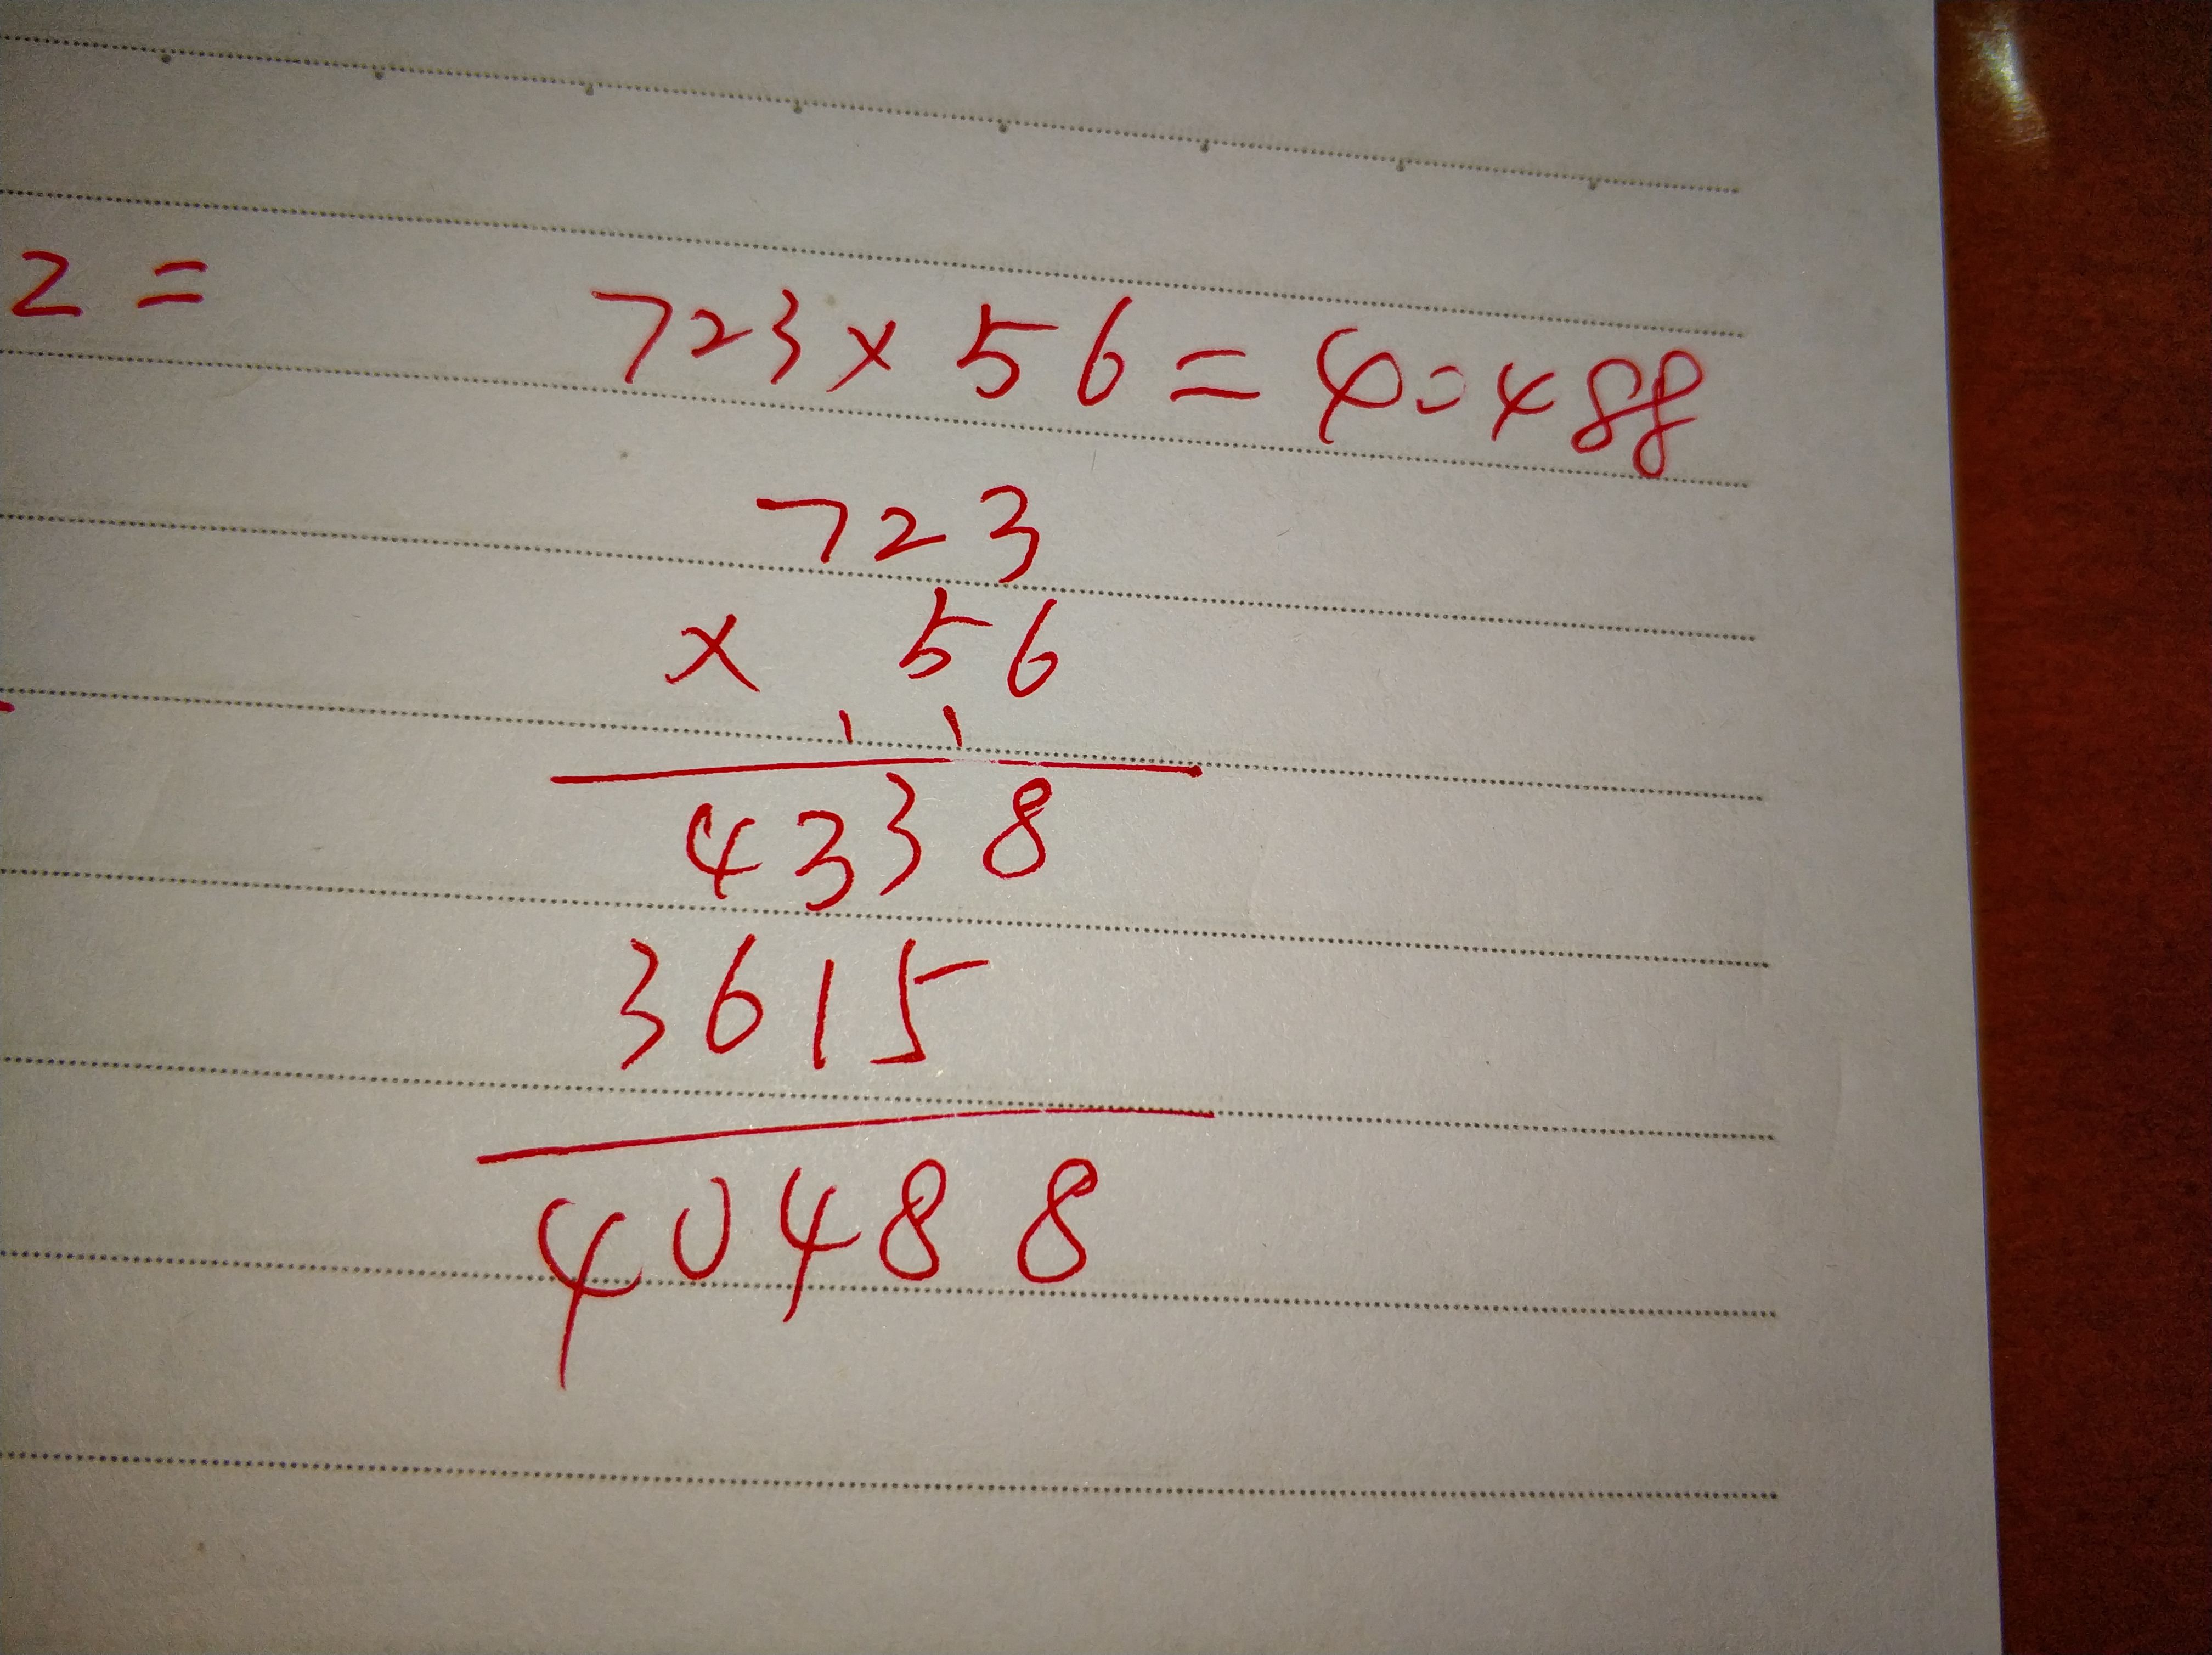 2 =
723 × 56 = 40488
723
× 56
1 1
4338
3615
40488